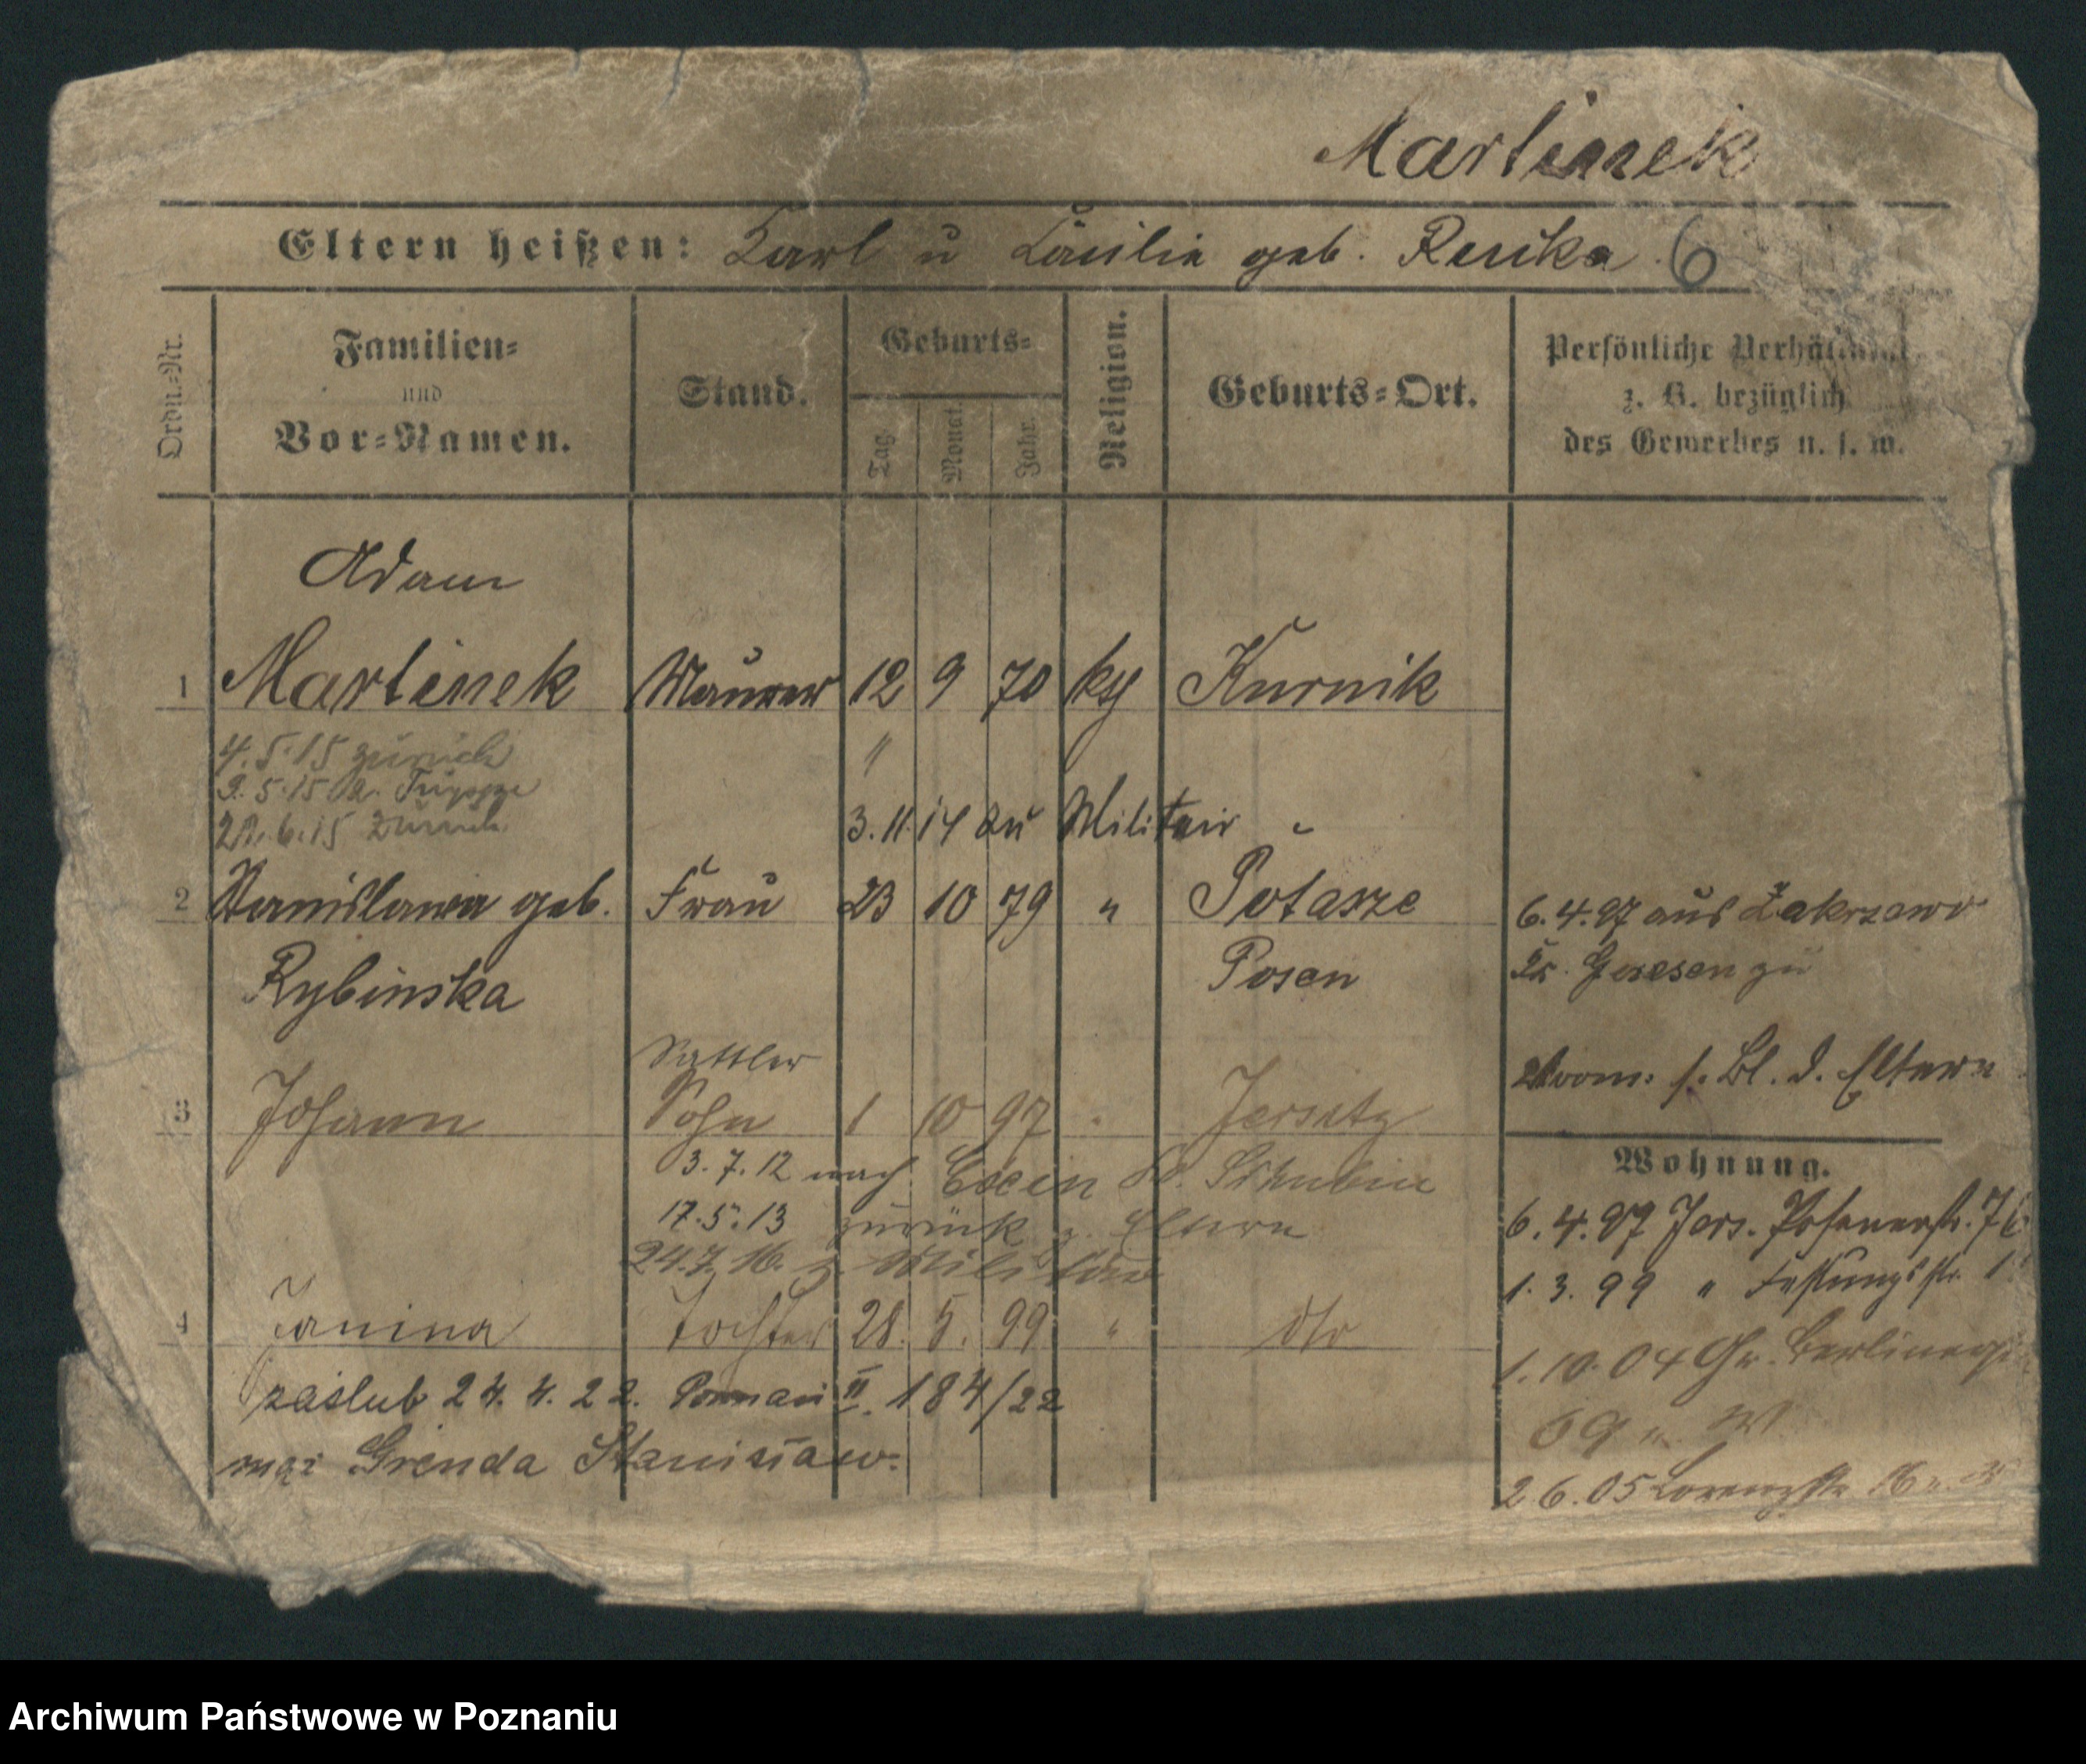 Martinek
Eltern heißen: Karl u Cäcilia geb. 6
Ordn.-Nr.
Familien-
und
Vor-Namen.
Stand.
Geburts-
Tag.
Monat.
Jahr.
Religion.
Geburts-Ort.
Persönliche
z. B. bezüglich
des Gewerbes u. s. w.
Adam
1 Martinek Maurer 12 9 70 kg Kurnik
4.5.15 zurück "
9.5.15 z. Truppe
6.15 zurück
3.11.14 zu Militair
2 Stanislawa geb. Frau 23 10 79 " Potarze 6.4.97 aus Zakrzewo
Rybinska Posen Kr. Gnesen zu
Sattler
3 Johann Sohn 1 10 97 " Jersitz
s. Bl. d. Eltern
3.7.12 nach Exin Kr. Schubin
17.5.13 zurück z. Eltern
24.7.16. z. Militär
4 Janina Tochter 28. 5. 99 " dto
zaślub 24.4.22. Poznań II. 184/22
mąż Grenda Stanisław.
Wohnung.
6.4.97 Jers. Posenerstr.
1.3.99 " Festungsstr.
1.10.04 Gr. Berliner
69
2 6.05 Lorenzstr. 16
Archiwum Państwowe w Poznaniu